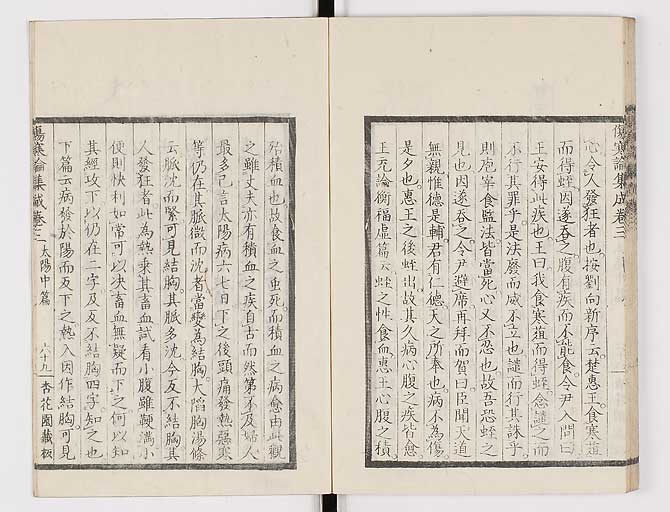 傷寒論集成卷三
心令人發狂者也按劉向新序云楚惠王食寒葅
而得蛭因遂吞之腹有疾而不能食令尹入問曰
王安得此疾也王曰我食寒葅而得蛭念譴之而
不行其罪乎是法發而威不立也譴而行其誅乎
則庖宰食監法皆當死心又不忍也故吾恐蛭之
見也因遂吞之令尹避席再拜而賀曰臣聞天道
無親惟德是輔君有仁德天之所奉也病不為傷
是夕也惠王之後蛭出故其久病心腹之疾皆愈
王充論衡福虛篇云蛭之性食血惠王心腹之積
殆積血也故食血之虫死而積血之病愈由此觀
之雖丈夫亦有積血之疾自古而然第不及婦人
最多已言太陽病六七日下之後頭痛發熱惡寒
等仍在其脈微而沈者當變為結胸大陷胸湯條
云脈沈而緊可見結胸其脈多沈今反不結胸其
人發狂者此為熱乘其畜血試看小腹雖鞕滿小
便則快利如常可以决畜血無疑而下之何以知
其經攻下以仍在二字及反不結胸四字知之也
下篇云病發於陽而反下之熱入因作結胸可見
傷寒論集成卷三 太陽中篇 六十九 杏花園藏板